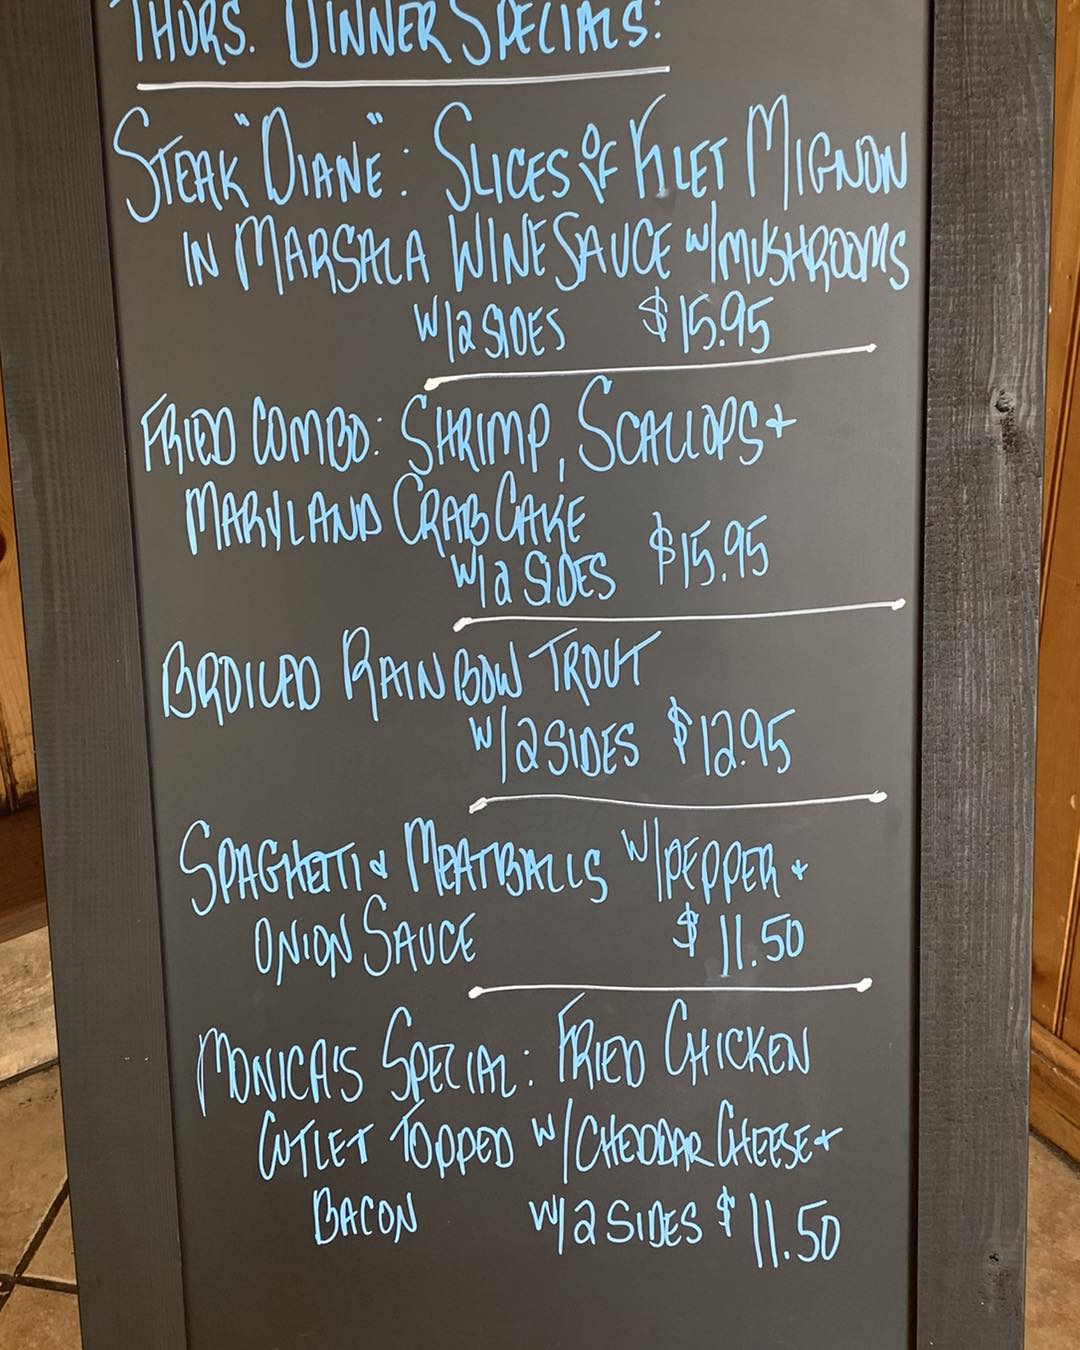 THURS. DINNER SPECIALS:
STEAK "DIANE": SLICES OF FILET MIGNON
IN MARSALA WINE SAUCE W/MUSHROOMS
W/2 SIDES $15.95
FRIED COMBO: SHRIMP, SCALLOPS +
MARYLAND CRAB CAKE
W/2 SIDES $15.95
BROILED RAINBOW TROUT
W/2 SIDES $12.95
SPAGHETTI & MEATBALLS W/PEPPER +
ONION SAUCE $11.50
MONICA'S SPECIAL: FRIED CHICKEN
CUTLET TOPPED W/CHEDDAR CHEESE +
BACON W/2 SIDES $11.50